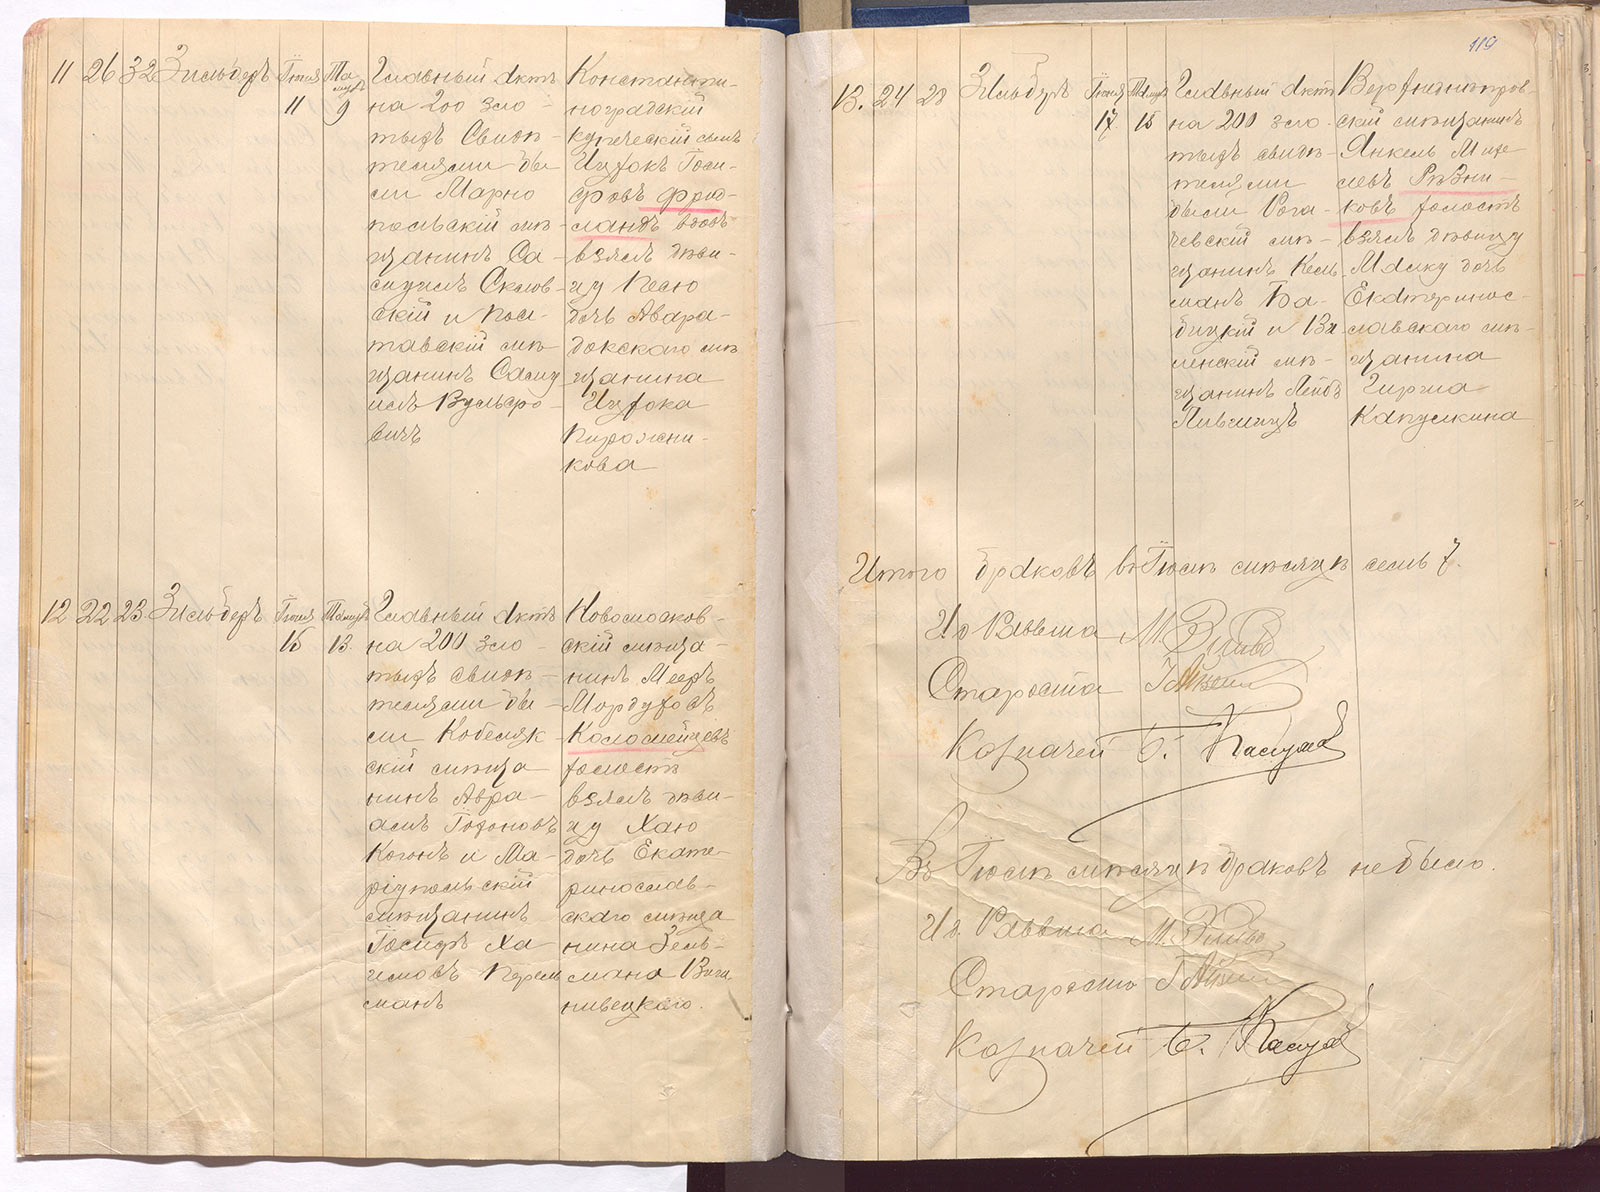 11 26 32 Зильберъ Іюня 11 Тамузъ 9
Главный актъ
на 200 зло-
тыхъ Свидѣ-
телями бы-
ли Марио
польскій мѣ-
щанинъ Са-
муилъ Склов-
скій и Пол-
тавскій мѣ-
щанинъ Саму
илъ Вульфо-
вичъ
Константи-
ноградскій
купеческій сынъ
Ицхокъ Іоси-
фовъ Фрид-
ландъ вдовъ
взялъ дѣви-
цу Песю
дочь
мѣ
щанина
Ицхока
Пирожни-
кова
12 22 23 Зильберъ Іюня 15 Тамузъ 13.
Главный актъ
на 200 зло-
тыхъ свидѣ-
телями бы-
ли Кобеляк-
скій мѣща-
нинъ Авра-
амъ
Коганъ и Ма-
ріупольскій
мѣщанинъ
Іосифъ Ха-
имовъ Перель
манъ
Новомосков-
скій мѣща-
нинъ Мееръ
Мордуховъ
Коломейцевъ
холостъ
взялъ дѣви-
цу Хаю
дочь Екате-
ринослав-
скаго мѣща
нина Зель-
мана
119
13. 24 20 Зильберъ Іюня 17 Тамузъ 15
Главный актъ
на 200 зло-
тыхъ свидѣ-
телями
были Рога-
чевскій мѣ-
щанинъ Кель-
манъ Ба-
бицкій и Ви
ленскій мѣ-
щанинъ Лейбъ
Лившицъ
Верхнеднѣпров-
скій мѣщанинъ
Янкель Мише
левъ Рѣзни-
ковъ холостъ
взялъ дѣвицу
Малку дочь
Екатеринос-
лавскаго мѣ-
щанина
Гирша
Капушкина
Итого браковъ въ Іюнѣ мѣсяцѣ семь 7.
Ид Раввина М. Зильб
Староста
Казначей Б.
Въ Іюлѣ мѣсяцѣ браковъ не было.
Ид Раввина М. Зильб
Староста
Казначей Б.